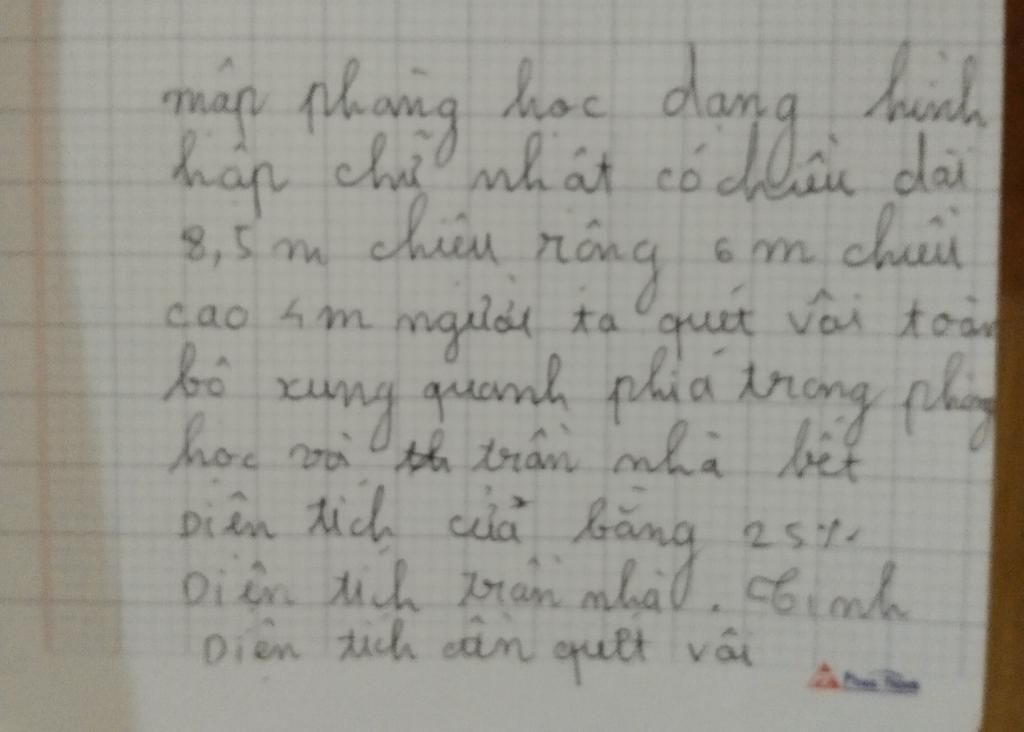 mập phòng học dạng hình
hập chữ nhật có chiều dài
8,5 m chiều rông 6 m chiều
cao 4 m người ta quét vôi toàn
bô xung quanh phía trong phòng
học và trần nhà bết
Diên tích cửa bằng 25%
Diên tích trần nhà. Tính
Diên tích cần quét vôi